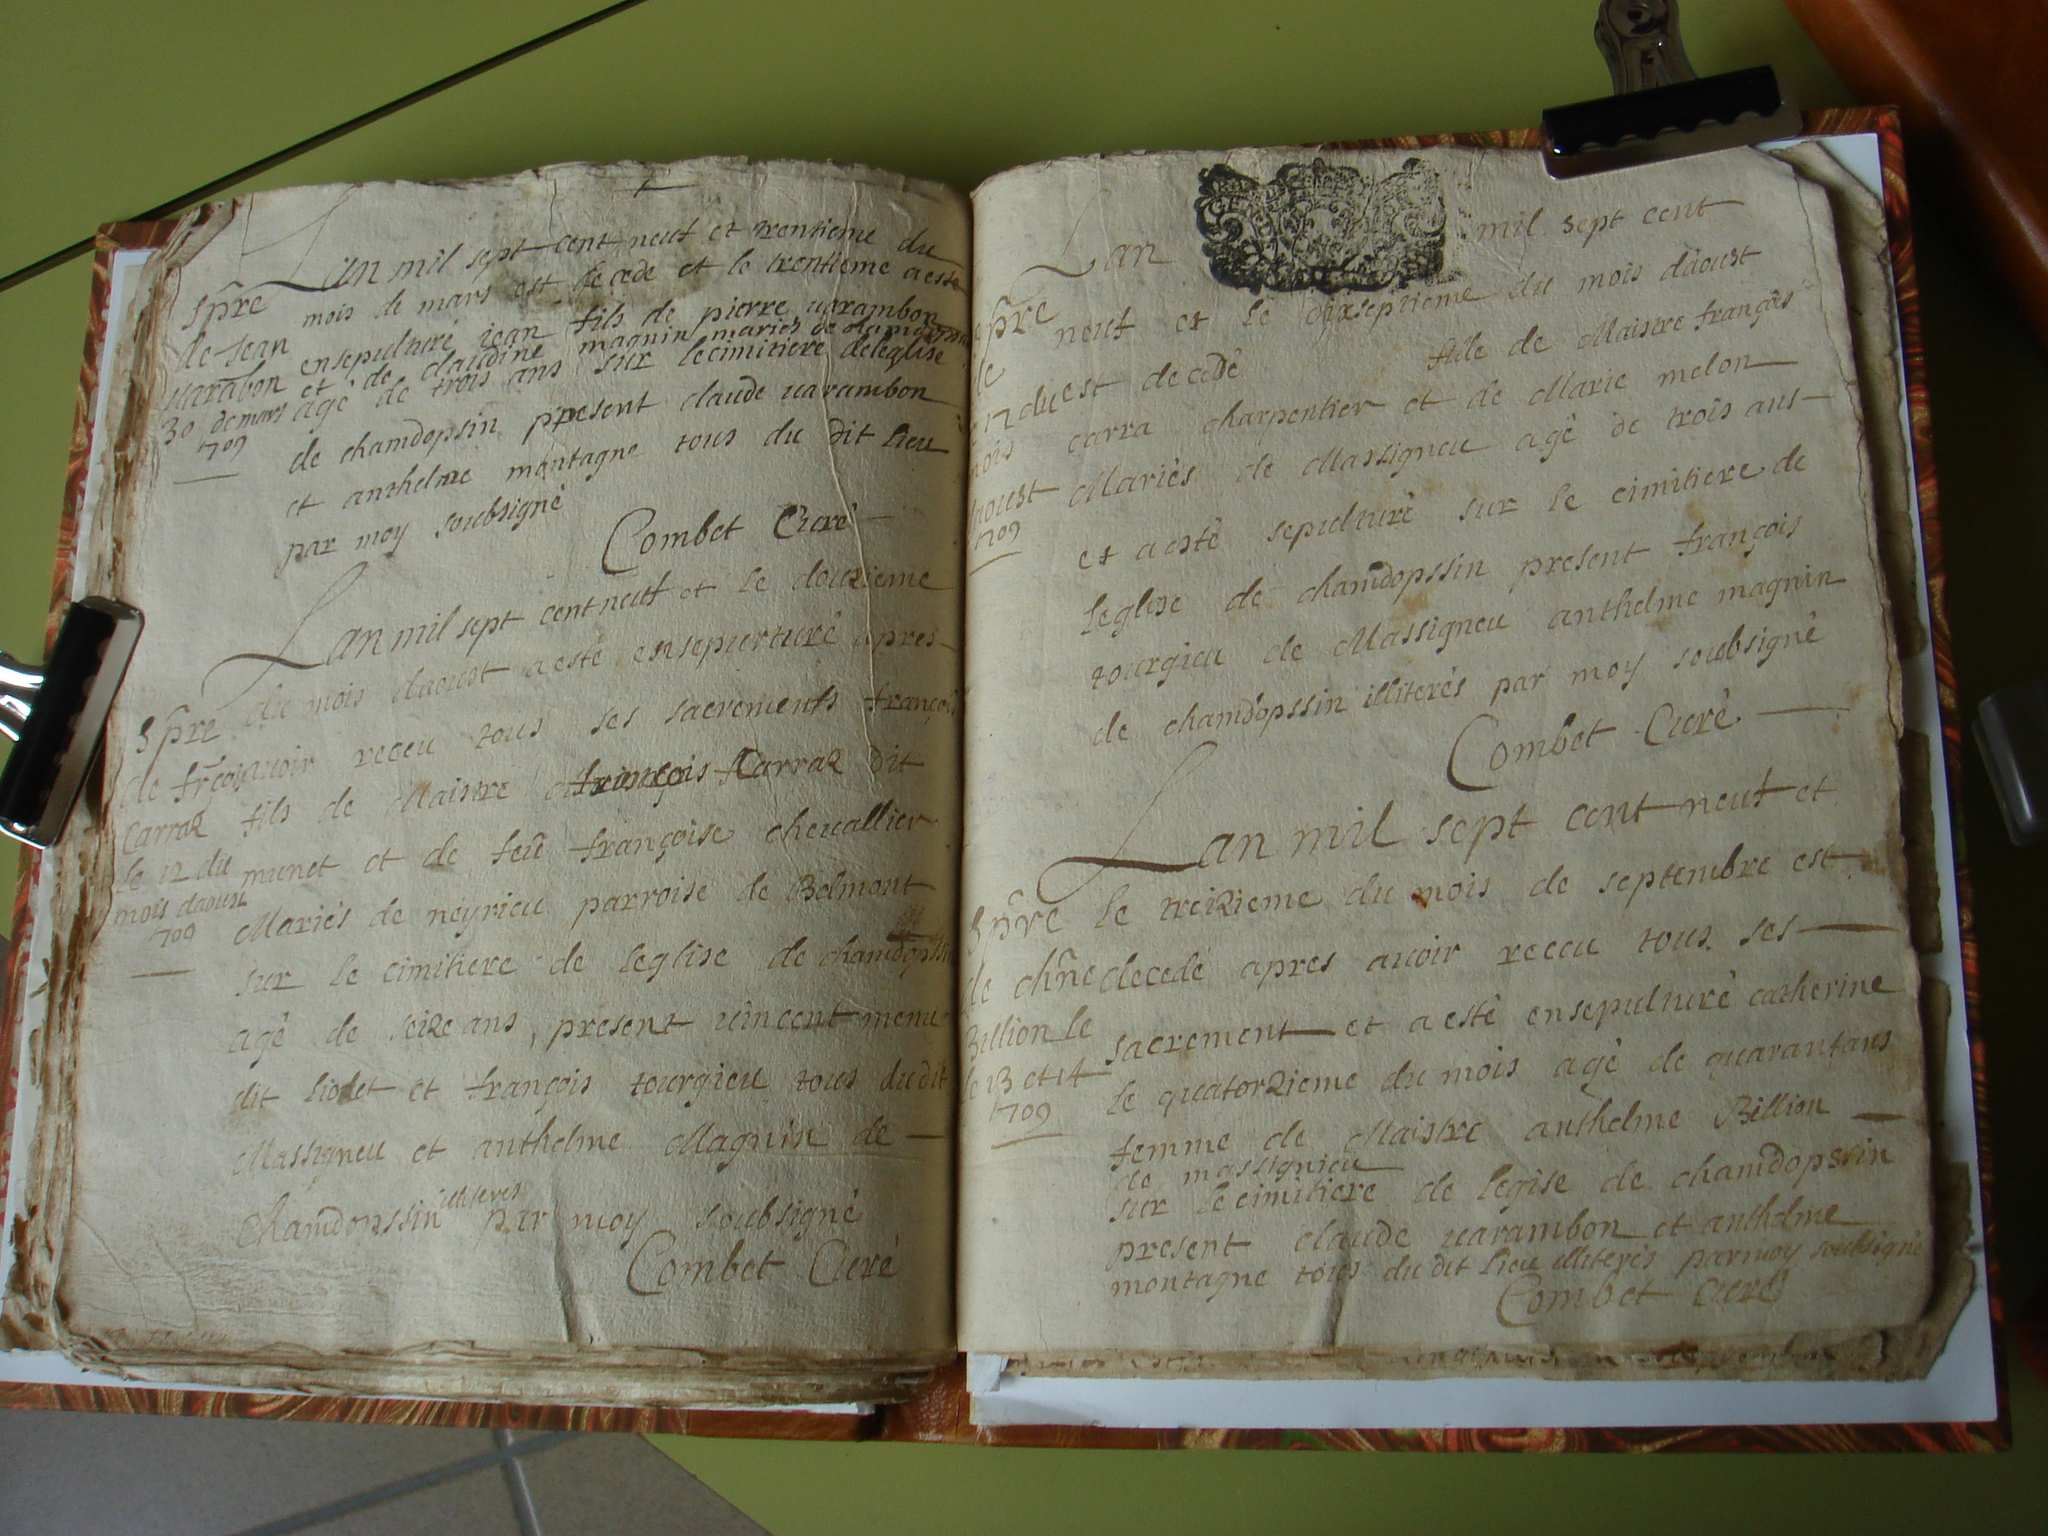 Lan mil sept cent neuf et trentieme du
mois de mars est decede et le trentieme a este
ensepulturé jean fils de pierre uarambon
et de claudine magnin mariés de chamdopsin
agé de trois ans sur le cimitiere de leglise
de chamdopsin present claude uarambon
et anthelme montagne tous du dit lieu
par moy soubsigné
Combet Curé
Spre
de Jean
uarabon
30 de mars
1709
Lan mil sept cent neuf et le douzieme
du mois daoust a esté ensepurturé apres
auoir receu tous ses sacrements françois
fils de Maistre françois Carraz dit
munet et de feue françoise cheuallier
Mariés de neyrieu parroise de Belmont
sur le cimitiere de leglise de chamdopssin
agé de seize ans, present uincent menu
dit liodet et françois tourgieu tous du dit
Massigneu et anthelme Magnin de
Chamdopssin illiteres par moy soubsigné
Combet Curé
Spre
de frcois
Carraz
le 12 du
mois daoust
709
Lan mil sept cent
neuf et le dixseptieme du mois daoust
est decedé fille de Maistre françois
carra charpentier et de Marie melon
Mariés de Massigneu agé de trois ans
et a esté sepulturé sur le cimitiere de
leglise de chamdopssin present françois
tourgieu de Massigneu anthelme magnin
de chamdopssin illiterés par moy soubsigné
Combet Curé
spre
de
17 du
mois
aoust
1709
Lan mil sept cent neuf et
le treizieme du mois de septembre est
decedé apres auoir receu tous ses
sacrement et a esté ensepulturé catherine
le quatorzieme du mois agé de quarantans
femme de Maistre anthelme Billion
de massignieu
sur le cimitiere de legise de chamdopssin
present claude uarambon et anthelme
montagne tous du dit lieu illiterés par moy soubsigné
Combet Curé
Spre
de chne
Billion le
le 13 et 14
1709